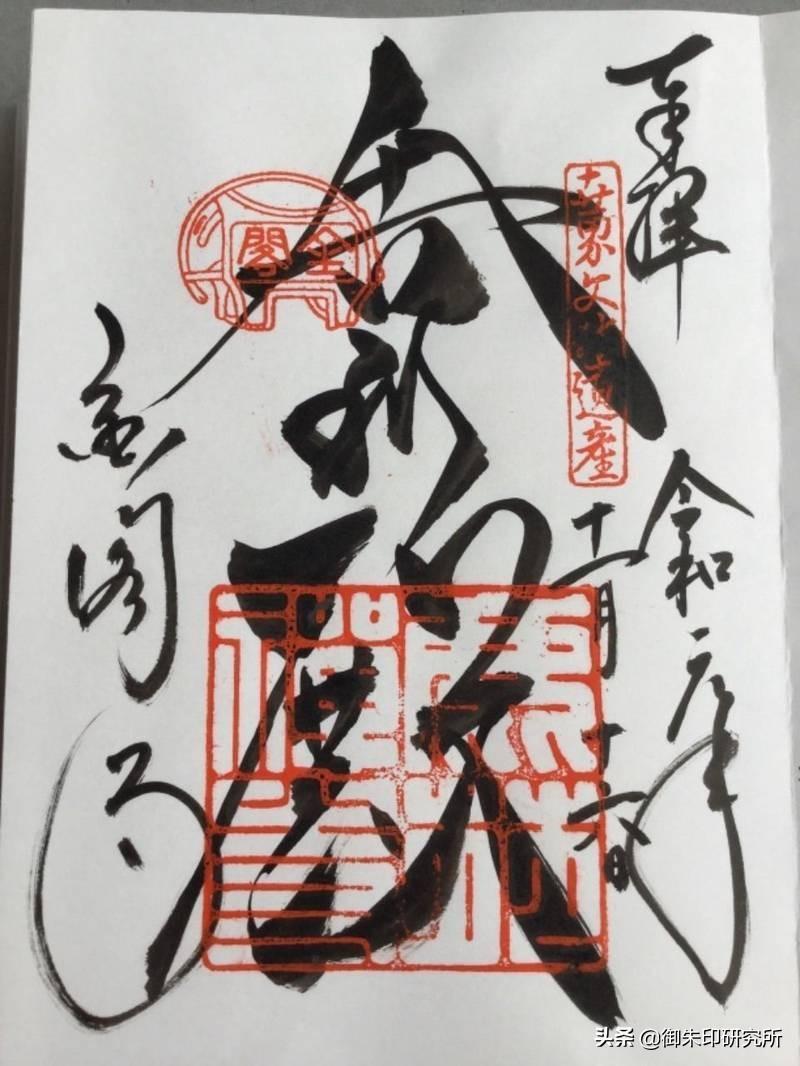 奉拝
令和元年
十一月十六日
世界文化遺産
舎利殿
金閣
鹿苑禪寺
金閣寺
头条 @御朱印研究所